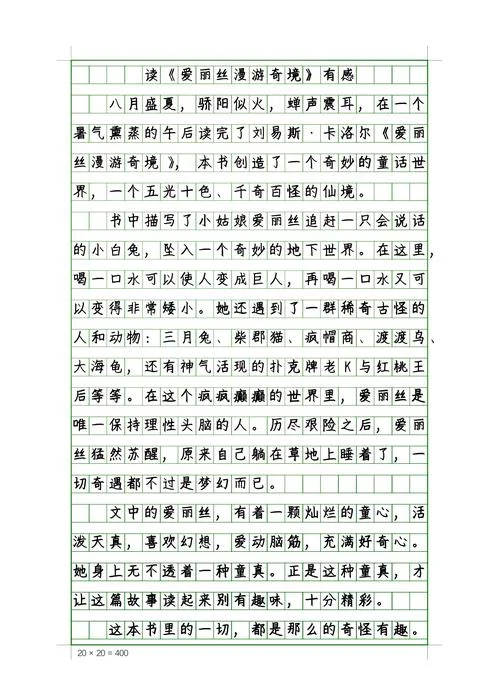 读《爱丽丝漫游奇境》有感
八月盛夏，骄阳似火，蝉声震耳，在一个
暑气熏蒸的午后读完了刘易斯·卡洛尔《爱丽
丝漫游奇境》，本书创造了一个奇妙的童话世
界，一个五光十色、千奇百怪的仙境。
书中描写了小姑娘爱丽丝追赶一只会说话
的小白兔，坠入一个奇妙的地下世界。在这里，
喝一口水可以使人变成巨人，再喝一口水又可
以变得非常矮小。她还遇到了一群稀奇古怪的
人和动物：三月兔、柴郡猫、疯帽商、渡渡鸟、
大海龟，还有神气活现的扑克牌老K与红桃王
后等等。在这个疯疯癫癫的世界里，爱丽丝是
唯一保持理性头脑的人。历尽艰险之后，爱丽
丝猛然苏醒，原来自己躺在草地上睡着了，一
切奇遇都不过是梦幻而已。
文中的爱丽丝，有着一颗灿烂的童心，活
泼天真，喜欢幻想，爱动脑筋，充满好奇心。
她身上无不透着一种童真。正是这种童真，才
让这篇故事读起来别有趣味，十分精彩。
这本书里的一切，都是那么的奇怪有趣。
20×20=400